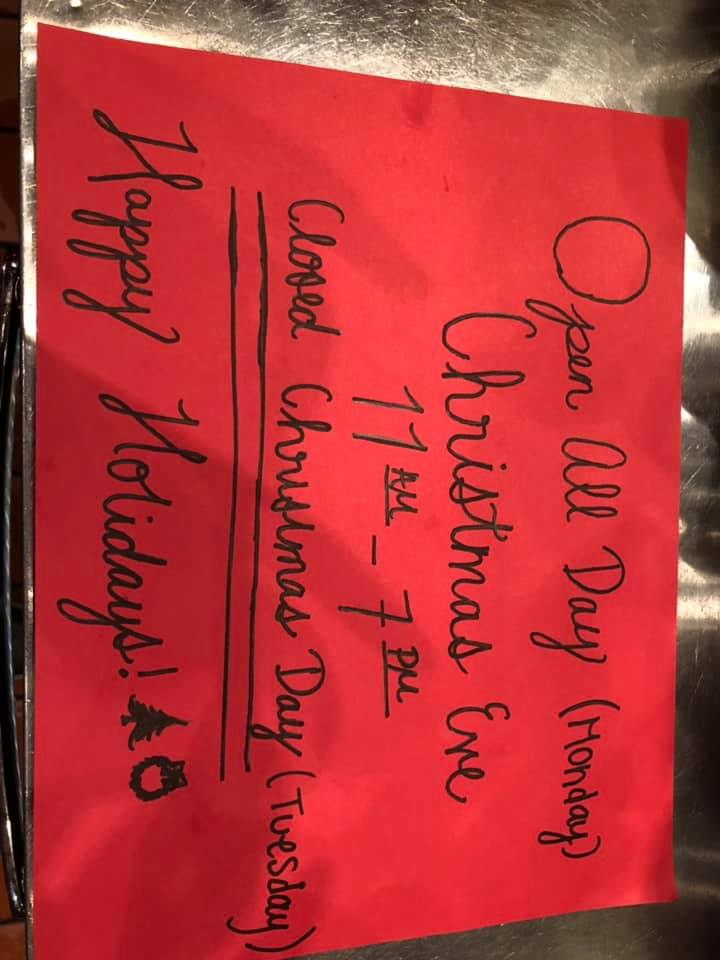 Open All Day (Monday)
Christmas Eve
11AM - 7PM
Closed Christmas Day (Tuesday)
Happy Holidays!